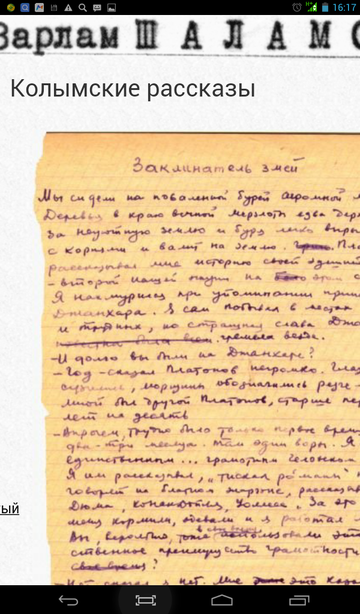 16:17
Варлам ШАЛАМО
Колымские рассказы
Заклинатель змей
Мы сидели на поваленной бурей огромной
Деревья в краю вечной мерзлоты едва держ
за неуютную землю и буря легко выры
с корнями и валит на землю. Пла
рассказывал мне историю своей здешней
- второй нашей жизни на этом
Я нахмурился при упоминании приис
Джанхара. Я сам побывал в местах
и трудных, но страшная слава Джа
гремела везде.
- И долго вы были на Джанхаре?
- Год - сказал Платонов негромко. Глаз
сузились, морщины обозначились резче -
мной был другой Платонов, старше пер
лет на десять
- Впрочем, трудно было только первое врем
два-три месяца. Там одни воры. Я
единственным ... грамотным человеком
Я им рассказывал, „тискал романы"
говорят на блатном жаргоне, рассказыв
Дюма, Конан-Дойля, Уоллеса. За это
меня кормили, одевали и я работал
Вы, вероятно, тоже в свое время использовали это
ственное преимущество грамотности
свое время?
- Нет сказал я нет. Мне это каза
ый